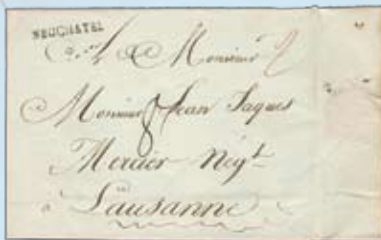 NEUCHATEL
A Monsieur
Monsieur Jean Jaques
Mercier Negt.
à Lausanne